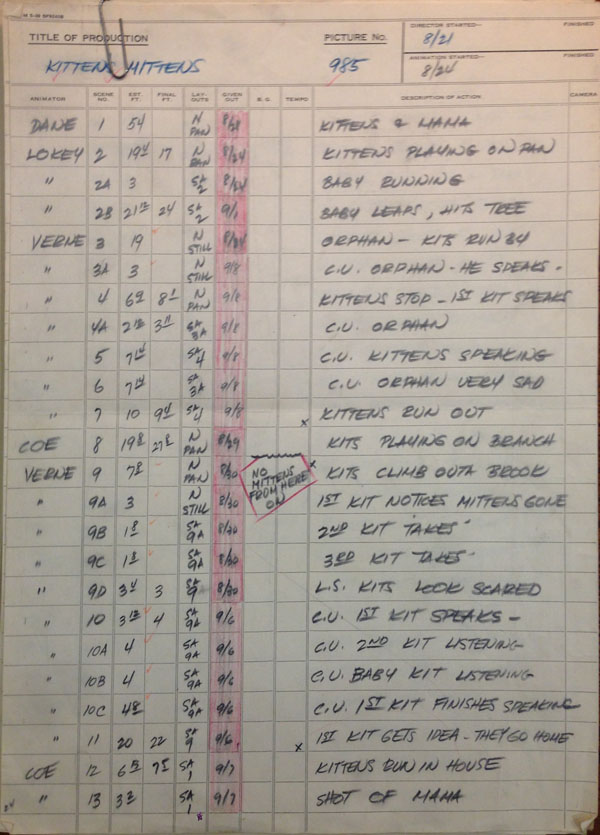 DIRECTOR STARTED— FINISHED
TITLE OF PRODUCTION PICTURE No. 8/21
ANIMATION STARTED— FINISHED
KITTENS MITTENS 985 8/24
ANIMATOR SCENE NO. EST. FT. FINAL FT. LAY-OUTS GIVEN OUT B.G. TEMPO DESCRIPTION OF ACTION CAMERA
DANE 1 54 N PAN KITTENS & MAMA
LOKEY 2 19 17 N PAN 8/24 KITTENS PLAYING ON PAN
" 2A 3 SA 2 8/24 BABY RUNNING
" 2B 24 SA 2 9/1 BABY LEAPS, HITS TREE
VERNE 3 19 N STILL 8/24 ORPHAN - KITS RUN BY
" 3A 3 N STILL 9/8 C.U. ORPHAN - HE SPEAKS -
" 4 N PAN 9/8 KITTENS STOP - 1ST KIT SPEAKS
" 4A SA 3A 9/8 C.U. ORPHAN
" 5 SA 4 9/8 C.U. KITTENS SPEAKING
" 6 SA 3A 9/8 C.U. ORPHAN VERY SAD
" 7 10 SA 9/8 x KITTENS RUN OUT
COE 8 N PAN 8/29 KITS PLAYING ON BRANCH
VERNE 9 N PAN 8/30 x KITS CLIMB OUTA BROOK
NO MITTENS FROM HERE ON
" 9A 3 N STILL 8/30 1ST KIT NOTICES MITTENS GONE
" 9B SA 9A 8/30 2ND KIT "TAKES"
" 9C SA 9A 8/30 3RD KIT "TAKES"
" 9D 3 SA 9 8/30 L.S. KITS LOOK SCARED
" 10 4 SA 9A 9/6 C.U. 1ST KIT SPEAKS -
" 10A 4 SA 9A 9/6 C.U. 2ND KIT LISTENING
" 10B 4 SA 9A 9/6 C.U. BABY KIT LISTENING
" 10C SA 9A 9/6 C.U. 1ST KIT FINISHES SPEAKING
" 11 20 22 SA 9 9/6 x 1ST KIT GETS IDEA - THEY GO HOME
COE 12 SA 1 9/7 KITTENS RUN IN HOUSE
" 13 SA 1 9/7 SHOT OF MAMA